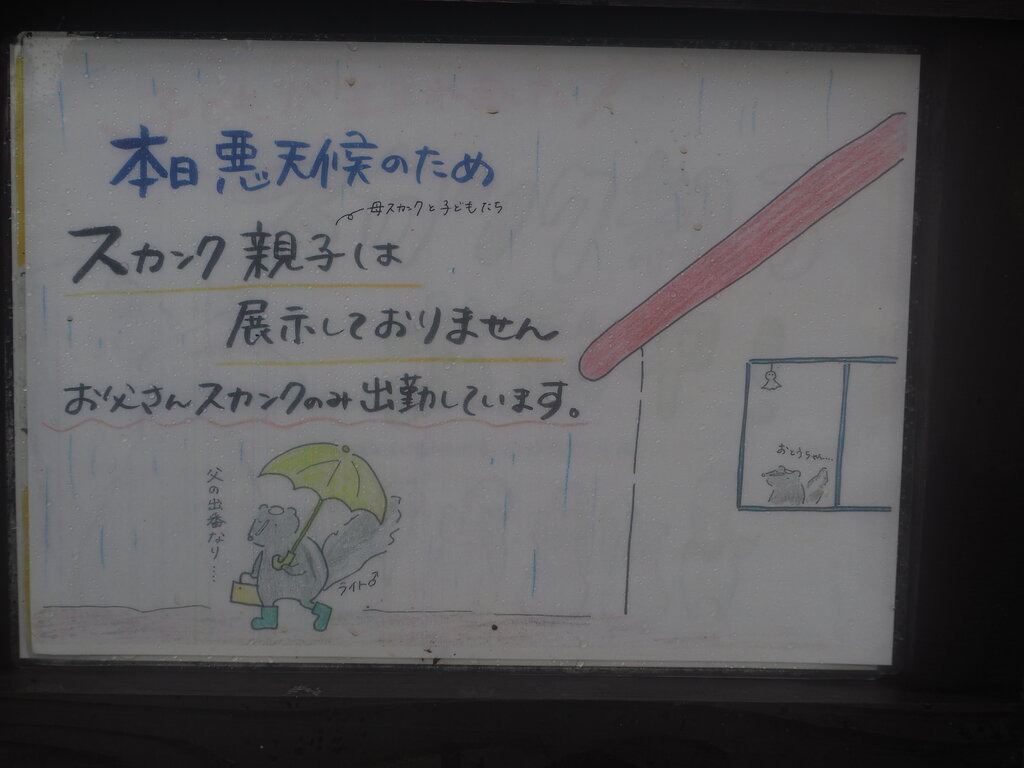 本日悪天候のため
母スカンクと子どもたち
スカンク親子は
展示しておりません
お父さんスカンクのみ出勤しています。
父の出番なり....
ライト♂
おとうちゃん...